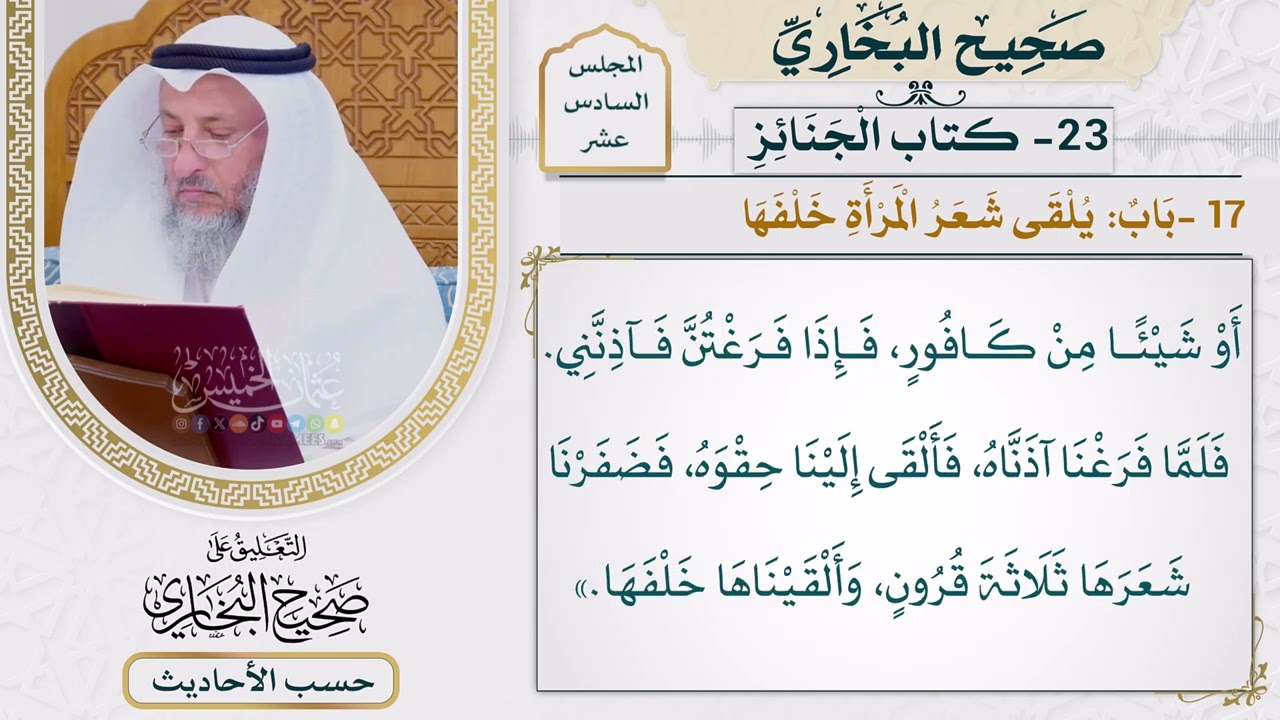 صَحِيح البُخَارِيِّ
المجلس
السادس
عشر
23- كتاب الْجَنَائِزِ
17 -بَابٌ: يُلْقَى شَعَرُ الْمَرْأَةِ خَلْفَهَا
أَوْ شَيْئًا مِنْ كَافُورٍ، فَإِذَا فَرَغْتُنَّ فَآذِنَّنِي.
فَلَمَّا فَرَغْنَا آذَنَّاهُ، فَأَلْقَى إِلَيْنَا حِقْوَهُ، فَضَفَرْنَا
شَعَرَهَا ثَلَاثَةَ قُرُونٍ، وَأَلْقَيْنَاهَا خَلْفَهَا.»
عُثمان الخميس
التَّعْلِيقُ عَلَى
صَحِيحِ البُخَارِي
حسب الأحاديث